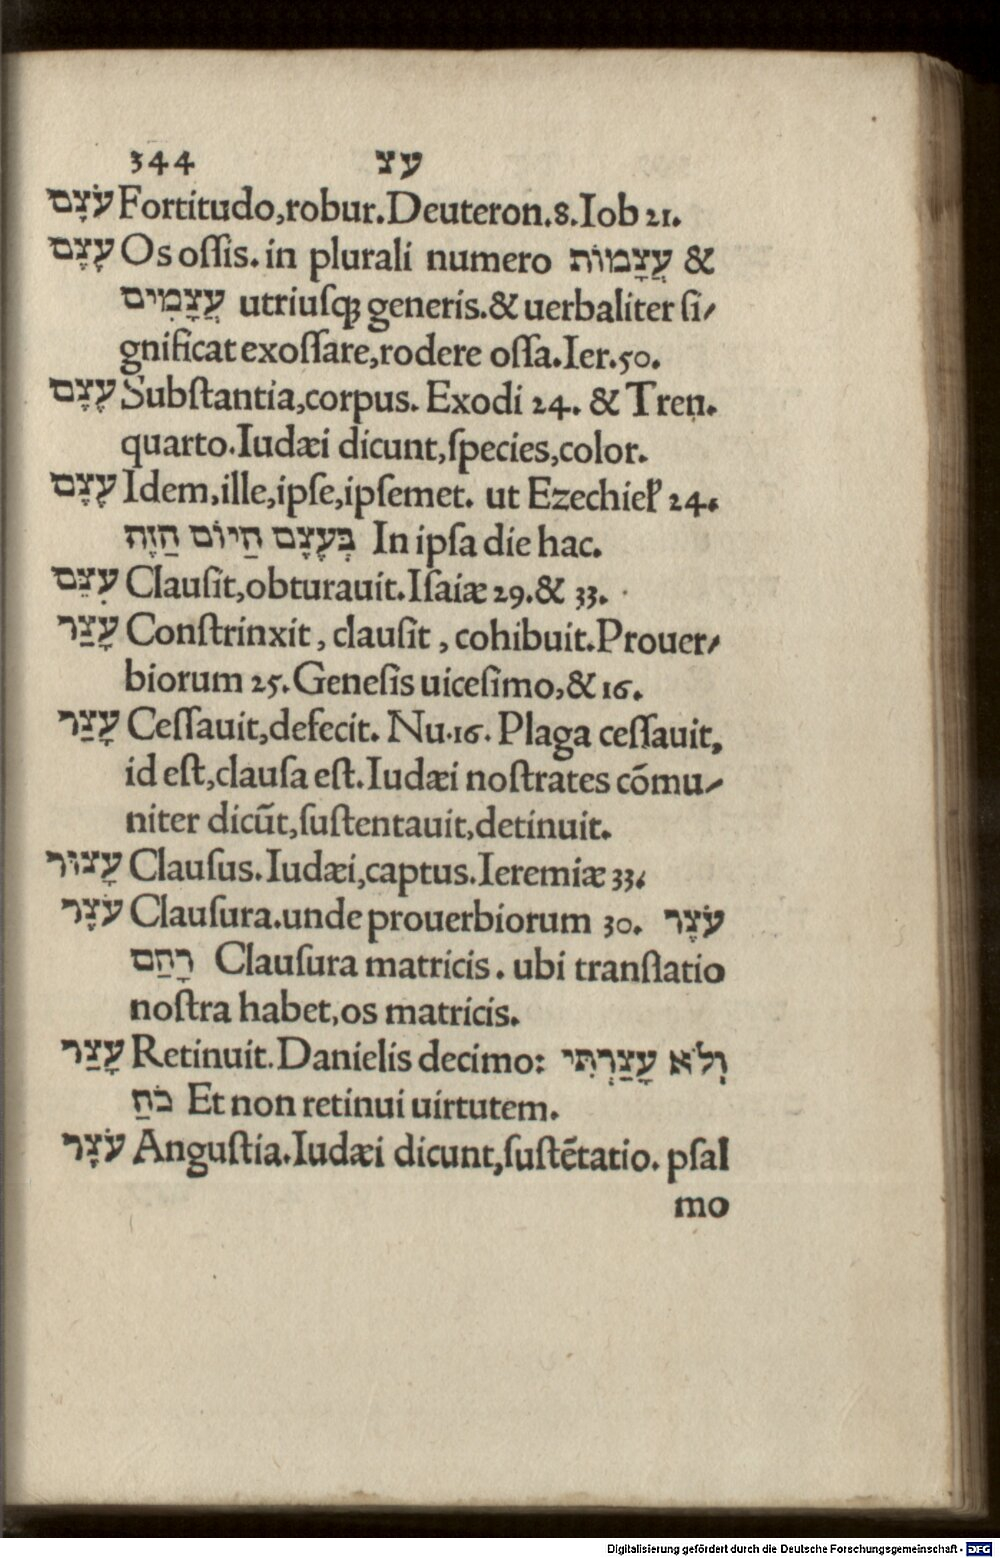 344 עצ
עֹצֶם Fortitudo,robur.Deuteron.8.Iob 21.
עֶצֶם Os oſſis. in plurali numero עֲצָמוֹת &
עֲצָמִים utriuſqꝫ generis.& uerbaliter ſi-
gnificat exoſſare,rodere oſſa.Ier.50.
עֶצֶם Subſtantia,corpus. Exodi 24. & Tren.
quarto.Iudæi dicunt,ſpecies,color.
עֶצֶם Idem,ille,ipſe,ipſemet. ut Ezechieł 24.
בְּעֶצֶם הַיוֹם הַזֶה In ipſa die hac.
עִצֵּם Clauſit,obturauit.Iſaiæ 29.& 33.
עָצַר Conſtrinxit, clauſit, cohibuit.Prouer-
biorum 25.Geneſis uiceſimo,& 16.
עָצַר Ceſſauit,defecit. Nu.16. Plaga ceſſauit,
id eſt,clauſa eſt.Iudæi noſtrates cõmu-
niter dicũt,ſuſtentauit,detinuit.
עָצוּר Clauſus.Iudæi,captus.Ieremiæ 33.
עֹצֶר Clauſura.unde prouerbiorum 30. עֹצֶר
רָהַם Clauſura matricis. ubi tranſlatio
noſtra habet,os matricis.
עָצַר Retinuit.Danielis decimo: וְלֹא עָצַרְתִּי
כֹחַ Et non retinui uirtutem.
עֹצֶר Anguſtia.Iudæi dicunt,ſuſtẽtatio. pſal
mo
Digitalisierung gefördert durch die Deutsche Forschungsgemeinschaft - DFG